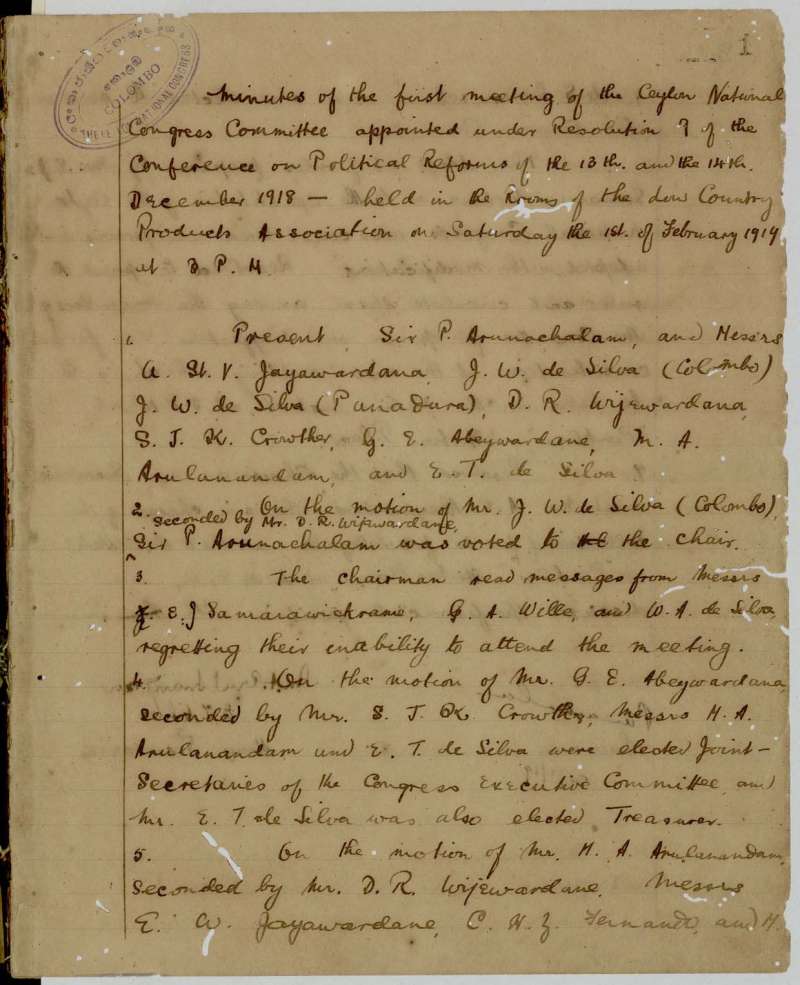 1
COLOMBO
NATIONAL CONGRESS
Minutes of the first meeting of the Ceylon National
Congress Committee appointed under Resolution 7 of the
Conference on Political Reforms of the 13th. and the 14th.
December 1918 — held in the Rooms of the Low Country
Products Association on Saturday the 1st. of February 1919
at 3 P. M.
1. Present Sir P. Arunachalam, and Messrs
A. St. V. Jayawardana, J. W. de Silva (Colombo)
J. W. de Silva (Panadura), D. R. Wijewardana,
S. J. K. Crowther, G. E. Abeywardane, M. A.
Arulanandam, and E. T. de Silva
2. On the motion of Mr. J. W. de Silva (Colombo),
seconded by Mr. D. R. Wijewardane,
Sir P. Arunachalam was voted to the chair.
3. The chairman read messages from Messrs
E. J Samarawickrame, G. A. Wille, and W. A. de Silva,
regretting their inability to attend the meeting.
4. On the motion of Mr. G. E. Abeywardana,
seconded by Mr. S. J. K. Crowther, Messrs M. A.
Arulanandam and E. T. de Silva were elected Joint-
Secretaries of the Congress Executive Committee and
Mr. E. T. de Silva was also elected Treasurer.
5. On the motion of Mr. M. A. Arulanandam,
seconded by Mr. D. R. Wijewardane, Messrs
E. W. Jayawardane, C. H. Z. Fernando, and M.